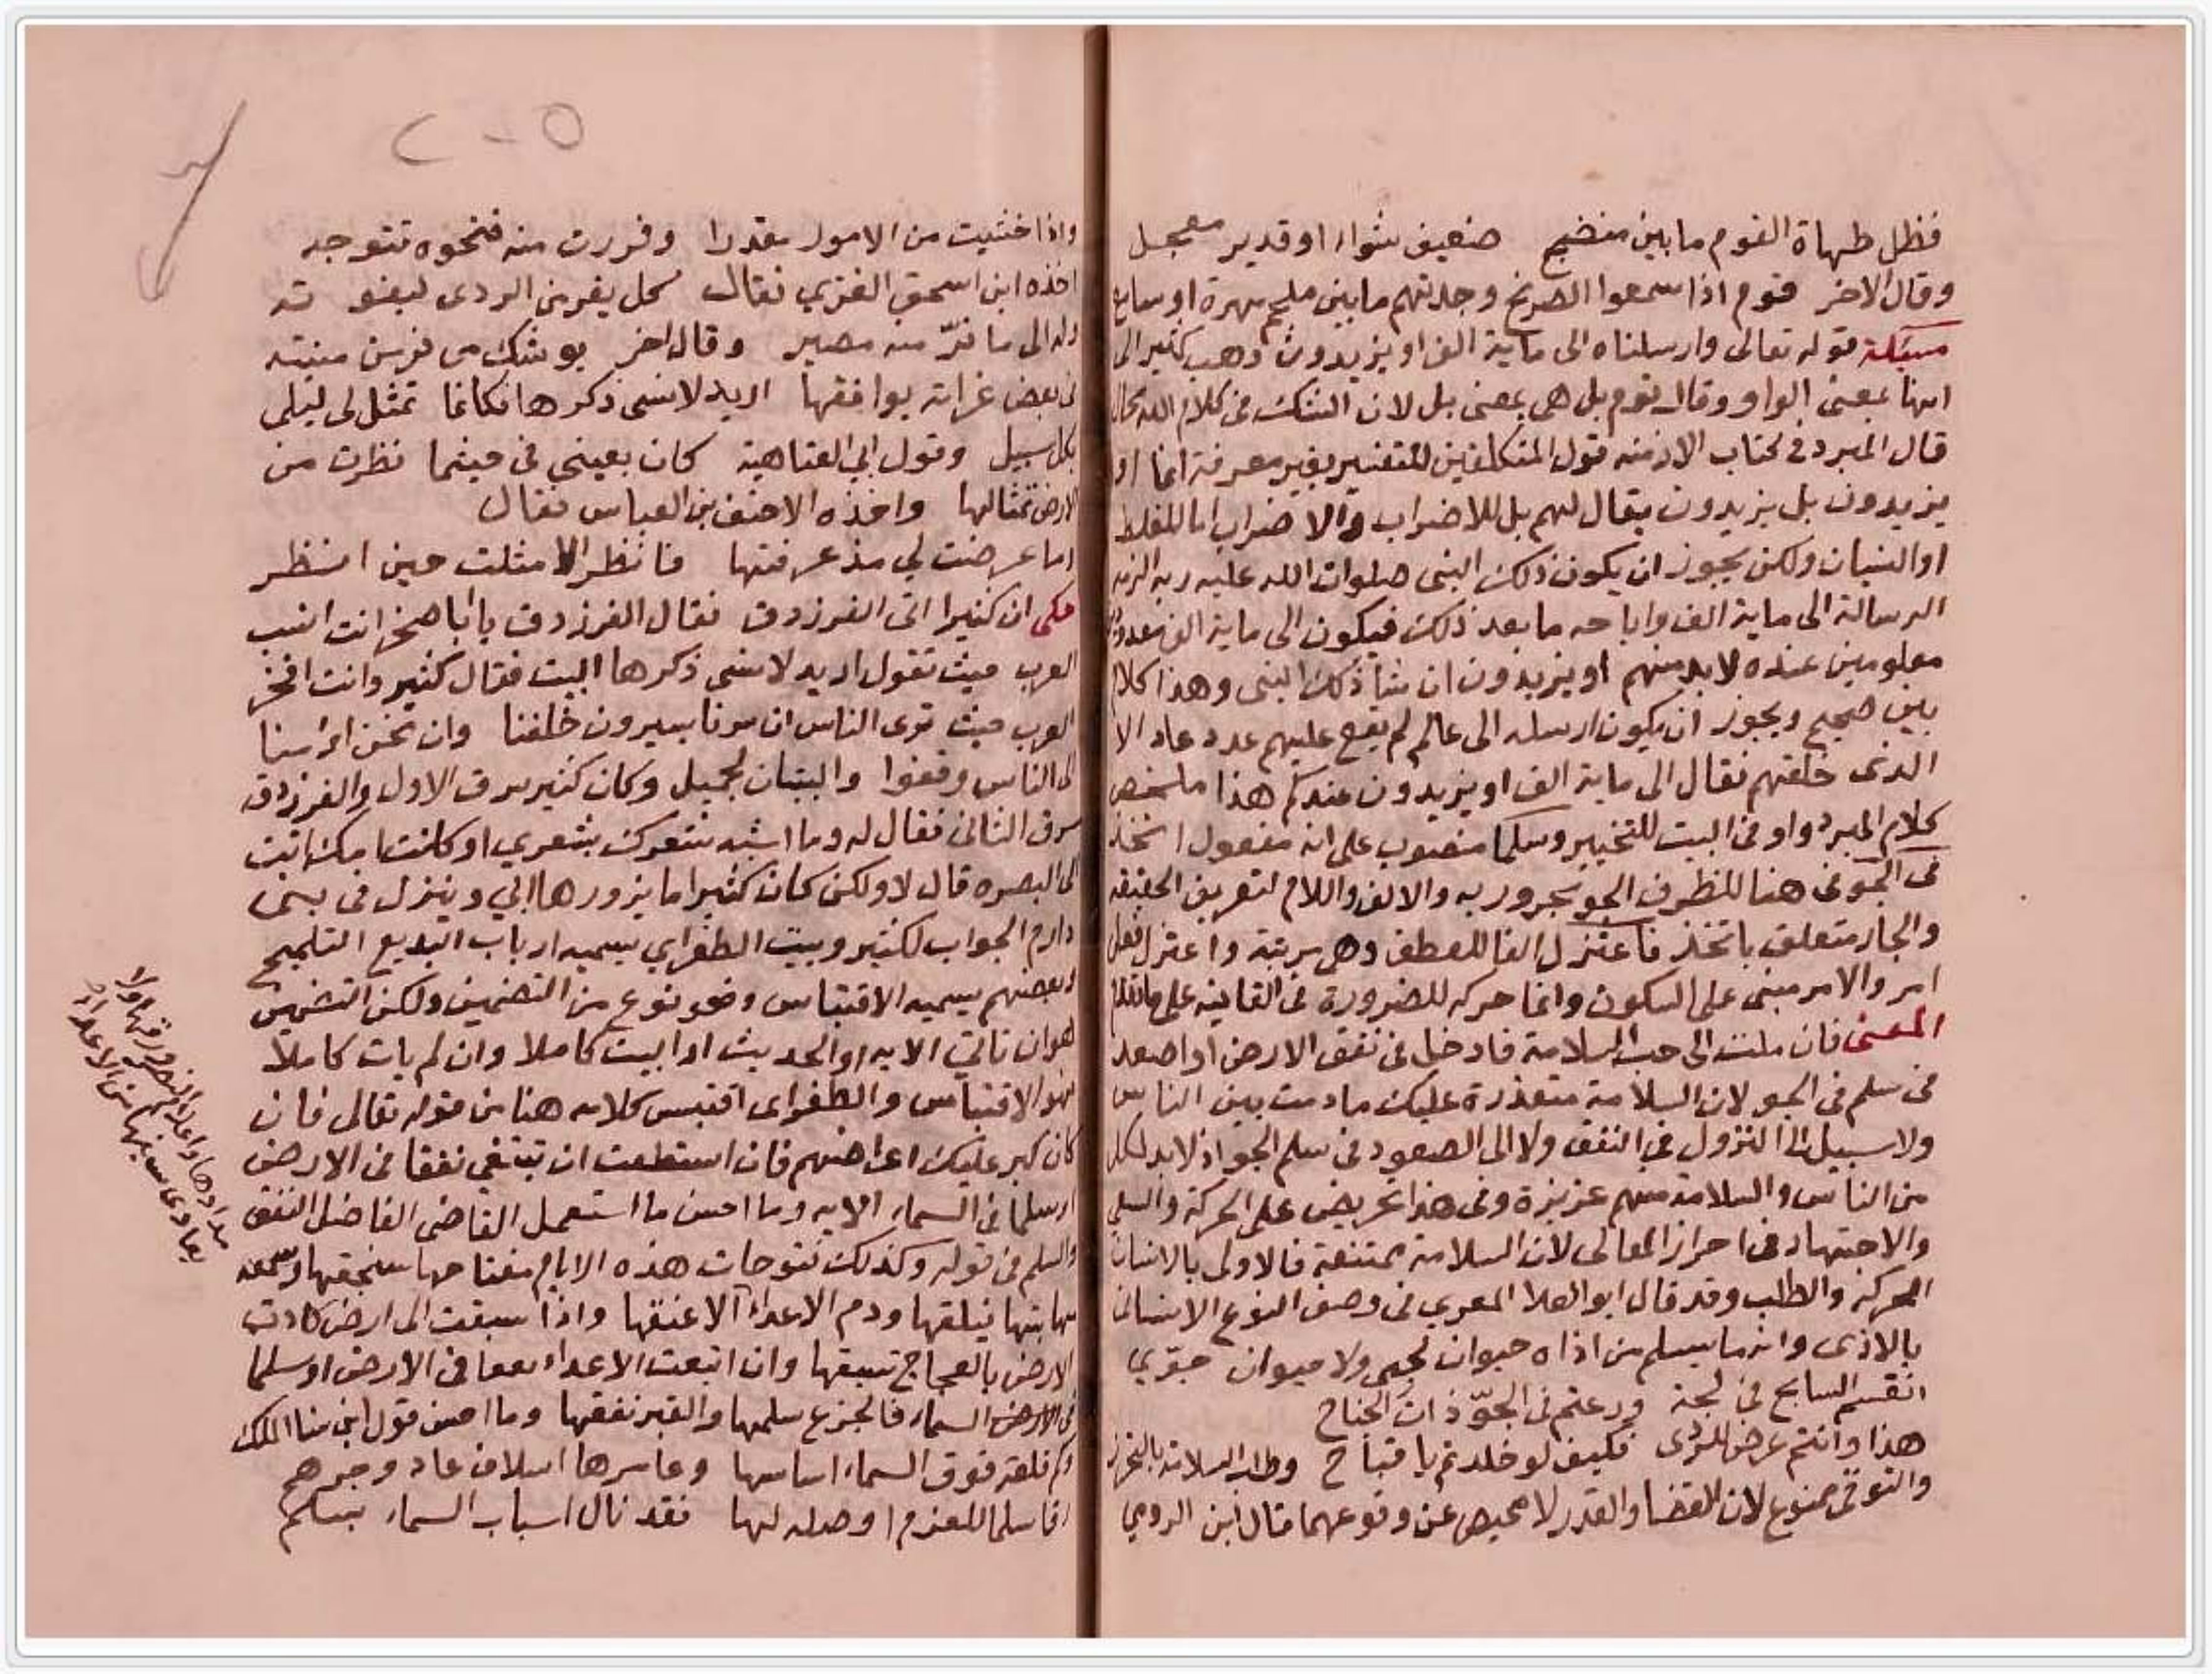 فظل طهاة القوم ما بين منضج صفيف شواء او قدير معجل
وقال الاخر قوم اذا سمعوا الصريخ وجدتهم ما بين ملجم مهره او سافع
مسئلة قوله تعالى وارسلناه الى ماية الف او يزيدون ذهب كثير الى
انها بمعنى الواو وقال قوم بل هي بمعنى بل لان الشك في كلام الله محال
قال المبرد في كتاب الازمنه قول المتكلفين للتفسير بغير معرفة انما او
يزيدون بل يزيدون يقال لهم بل للاضراب والاضراب اما للغلط
او النسيان ولكن يجوز ان يكون ذلك النبى صلوات الله عليه ربه الزمه
الرسالة الى ماية الف واباحه ما بعد ذلك فيكون الى ماية الف معدود
معلومين عنده لا بد منهم او يزيدون ان شا ذلك النبى وهذا كلام
بين صحيح ويجوز ان يكون ارسله الى عالم لم يقع عليهم عدد عاد الا
الذى خلقهم فقال الى ماية الف او يزيدون عندكم هذا ملخص
كلام المبرد واو في البيت للتخيير وسلما منصوب على انه مفعول اتخذ
فى الجو فى هنا للظرف الجو مجرور به والالف واللام لتعريف الحقيقه
والجار متعلق باتخذ فاعتزل الفا للعطف وهى مرتبة واعتزل فعل
امر والامر مبنى على السكون وانما حركه للضرورة فى القافية على ما تقدم
المعنى فان ملت الى حب السلامة فادخل فى نفق الارض او اصعد
فى سلم فى الجو لان السلامة متعذرة عليك ما دمت بين الناس
ولا سبيل الى النزول في النفق ولا الى الصعود فى سلم الجو اذ لا بد لكل
من الناس والسلامة منهم عزيزة وفى هذا تحريض على الحركة والسعي
والاجتهاد فى احراز المعالى لان السلامة ممتنعة فالاولى بالانسان
الحركة والطلب وقد قال ابو العلا المعري فى وصف النوع الانسانى
بالاذى وانه ما يسلم من اذاه حيوان لجى ولا حيوان جوي
انقسم السابح فى لجة ورعتم فى الجوّ ذات الجناح
هذا وانتم عرض للردى فكيف لو خلدتم يا قباح وطلب السلامة بالتحرز
والتوقى ممنوع لان القضا والقدر لا محيص عن وقوعهما قال ابن الرومي
واذا خشيت من الامور مقدرا وفررت منه فنحوه تتوجه
اخذه ابن اسحق الغزي فقال كل يفر من الردى ليفوته
وله الى ما فرّ منه مصير وقال اخر يوشك من فر من منيته
فى بعض غراته يوافقها اريد لانسى ذكرها فكانما تمثل لى ليلى
بكل سبيل وقول ابي العتاهية كان بعيني فى حيثما نظرت من
الارض تمثالها واخذه الاحنف بن العباس فقال
وما عرضت لي مذ عرفتها فانظر الا مثلت حين انظر
حكى ان كثيرا اتى الفرزدق فقال الفرزدق يا ابا صخر انت انسب
العرب حيث تقول اريد لانسى ذكرها البيت فقال كثير وانت افخر
العرب حيث ترى الناس ان سرنا يسيرون خلفنا وان نحن اومانا
الى الناس وقفوا والبيتان لجميل وكان كثير سرق الاول والفرزدق
سرق الثانى فقال له وما اشبه شعرك بشعري او كانت امك اتت
الى البصره قال لا ولكن كان كثيرا ما يزورها ابي وينزل فى بنى
دارم الجواب لكثير وبيت الطغراي يسميه ارباب البديع التلميح
وبعضهم يسميه الاقتباس وهو نوع من التضمين ولكن التضمين
هو ان تاتي الايه او الحديث او البيت كاملا وان لم يات كاملا
فهو الاقتباس والطغراى اقتبس كلامه هنا من قوله تعالى فان
كان كبر عليك اعراضهم فان استطعت ان تبتغي نفقا فى الارض
او سلما فى السماء الايه وما احسن ما استعمل القاضى الفاضل النفق
والسلم فى قوله وكذلك فتوحات هذه الايام مفتاحها سنجقها وسمعه
مهابتها فيلقها ودم الاعداء الا عنقها واذا سبقت الى ارض كادت
الارض بالعجاج تسبقها وان ابتغت الاعداء نفقا فى الارض او سلما
فى السماء فالجزع سلمها والقبر نفقها وما احسن قول ابن سنا الملك
وكم قلعة فوق السماء اساسها وعامرها اسلاف عاد وجرهم
رقا سلما للعزم اوصله لها فقد نال اسباب السماء بسلم